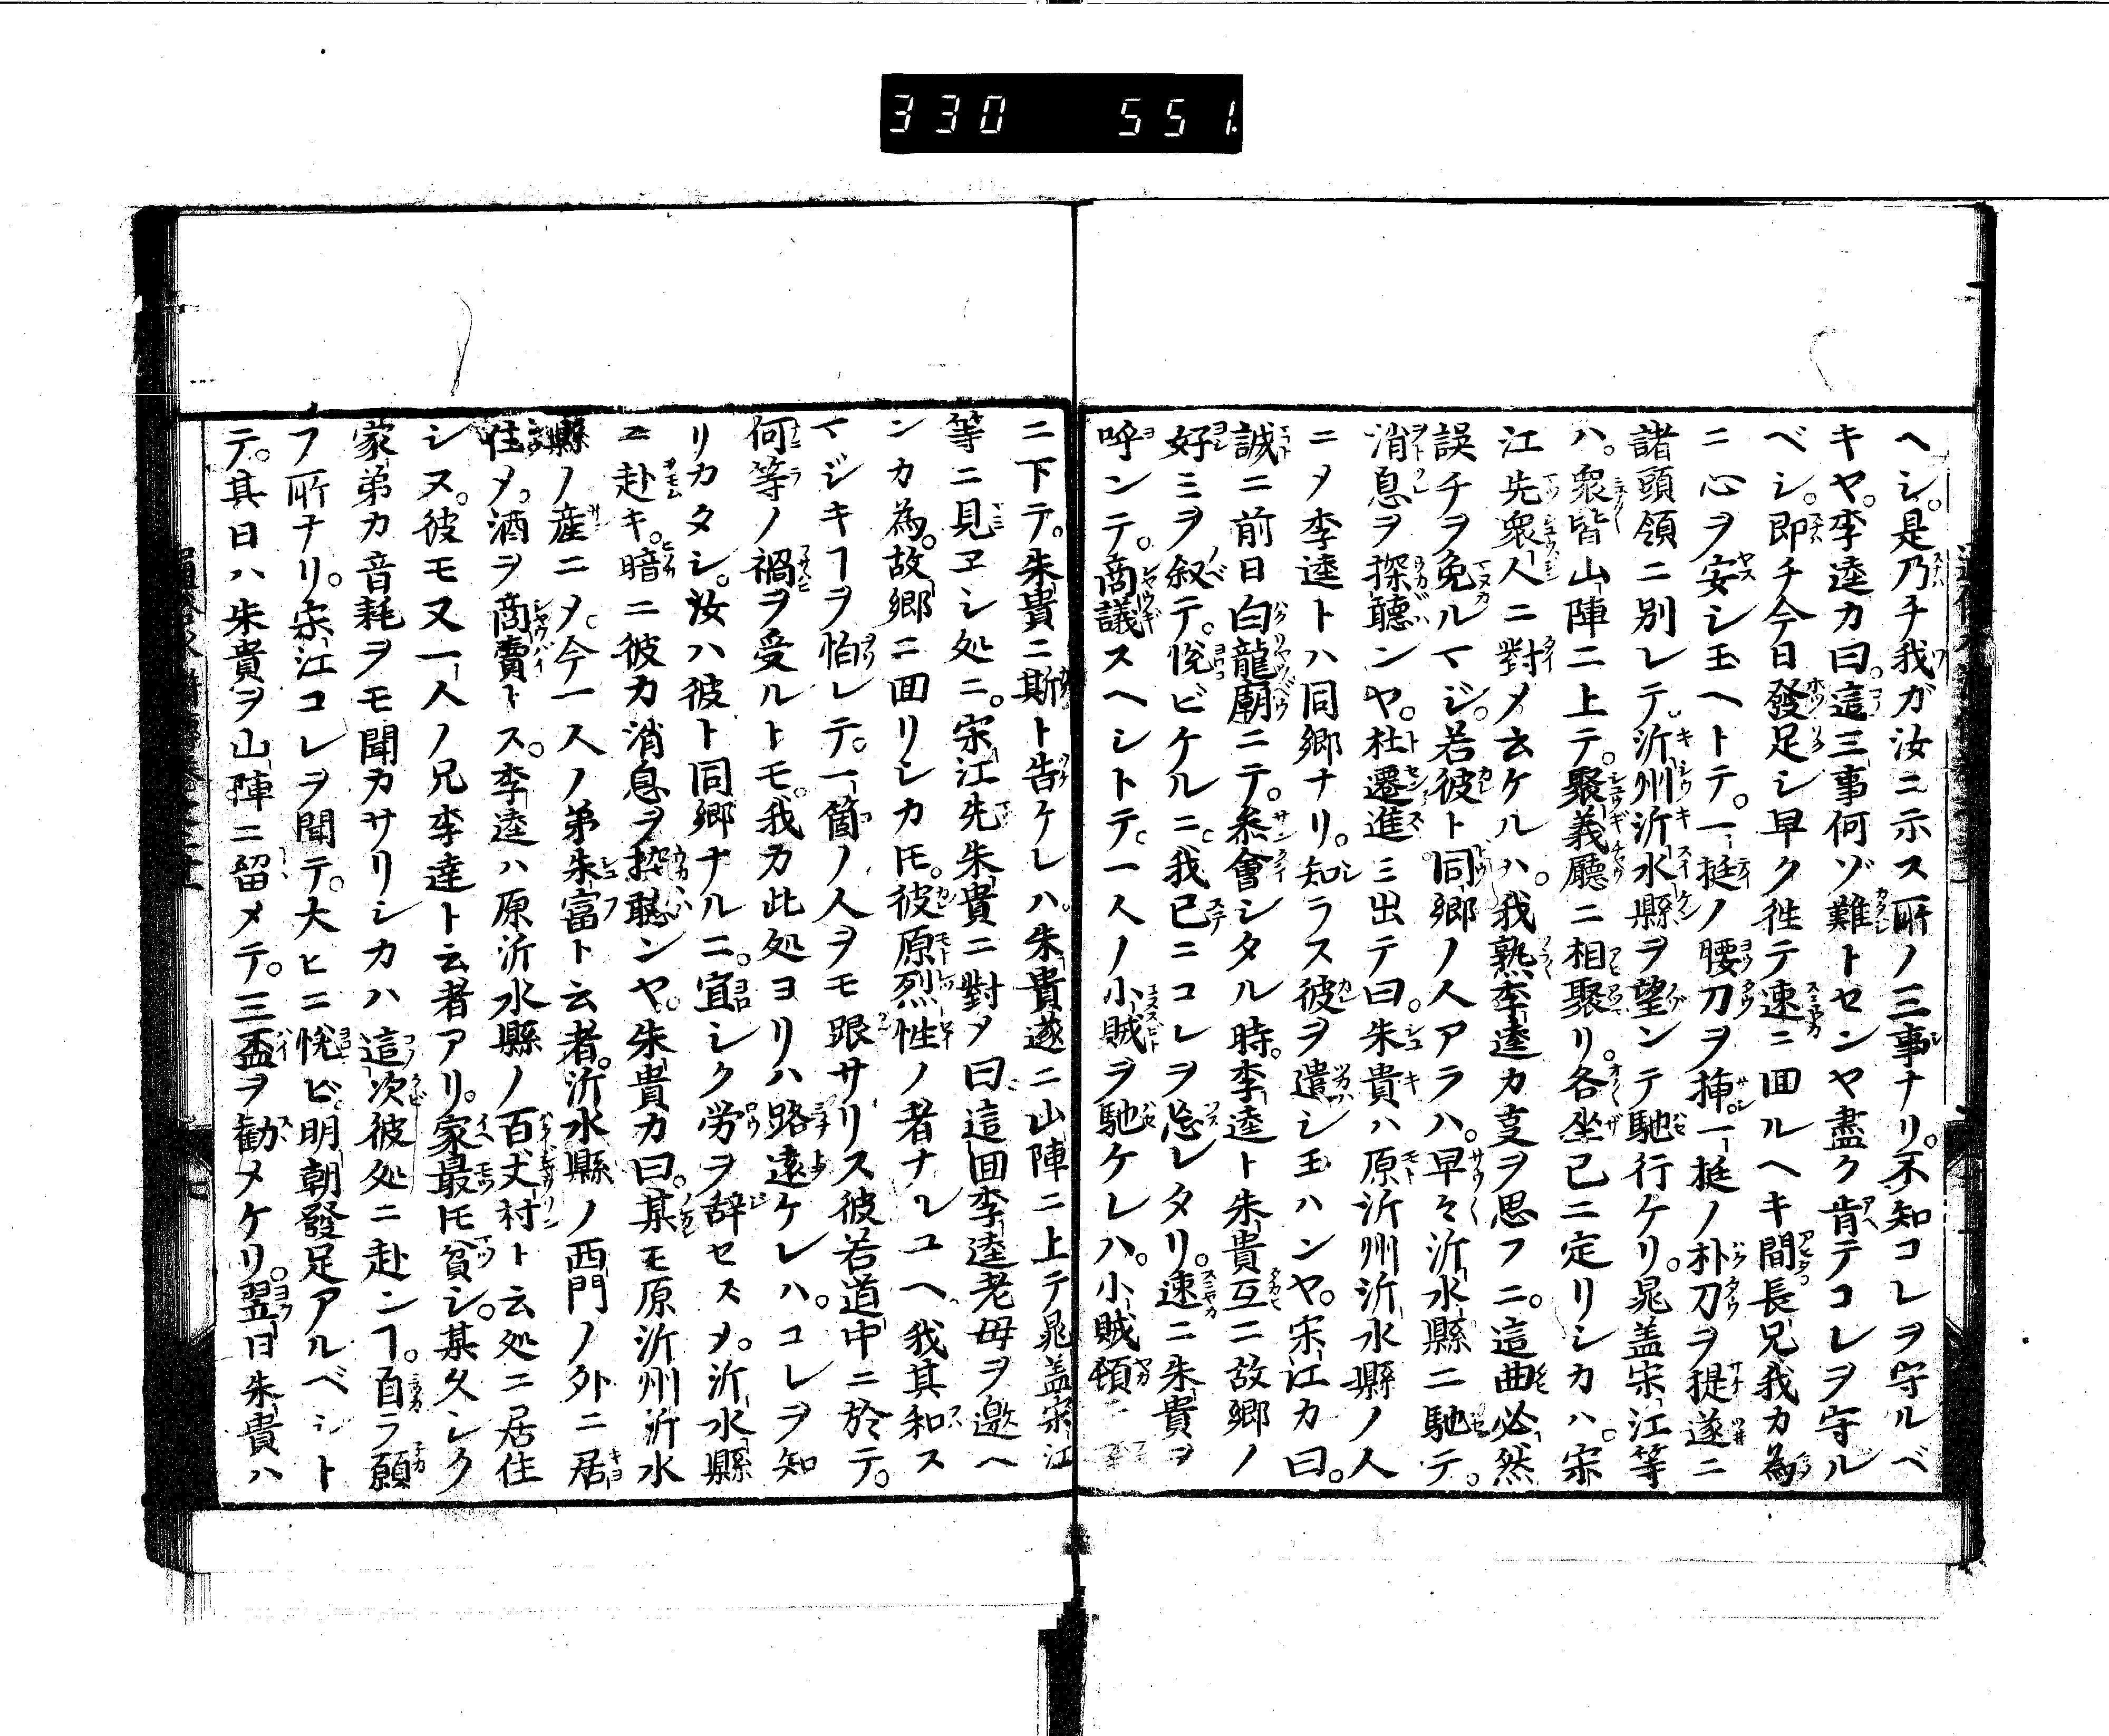 330 551.
ヘシ。是乃チ我ガ汝ニ示ス所ノ三事ナリ。不知コレヲ守ルベ
キヤ。李逵カ曰。這三事何ゾ難トセンヤ盡ク肯テコレヲ守ル
ベシ。即チ今日發足シ早ク徃テ速ニ回ルヘキ間長兄我カ為
ニ心ヲ安シ玉ヘトテ。一挺ノ腰刀ヲ挿一挺ノ朴刀ヲ提遂ニ
諸頭領ニ別レテ。沂州沂水縣ヲ望ンテ馳行ケリ。晁盖宋江等
ハ。衆皆山陣ニ上テ。聚義廳ニ相聚リ。各坐已ニ定リシカハ。宋
江先衆人ニ對メ云ケルハ。我熟李逵カ夏ヲ思フニ。這曲必然
誤チヲ免ルマジ。若彼ト同郷ノ人アラハ。早々沂水縣ニ馳テ。
消息ヲ探聽ンヤ。杜遷進ミ出テ曰。朱貴ハ原沂州沂水縣ノ人
ニメ李逵トハ同郷ナリ。知ラス彼ヲ遣シ玉ハンヤ。宋江カ曰。
誠ニ前日白龍廟ニテ。叅會シタル時。李逵ト朱貴互ニ故郷ノ
好ミヲ叙テ。悦ビケルニ我已ニコレヲ忘レタリ。速ニ朱貴ヲ
呼ンテ。商議スヘシトテ。一人ノ小賊ヲ馳ケレハ。小賊頓
ニ下テ。朱貴ニ斯ト告ケレハ。朱貴遂ニ山陣ニ上テ晁盖宋江
等ニ見ヱシ処ニ。宋江先朱貴ニ對メ曰這回李逵老母ヲ邀ヘ
ンカ為。故郷ニ回リシカ𪜈。彼原烈性ノ者ナルユヘ我其和ス
マジキヿヲ怕レテ。一箇ノ人ヲモ跟サリス彼若道中ニ於テ。
何等ノ禍ヲ受ルトモ。我カ此処ヨリハ路遠ケレハ。コレヲ知
リカタシ。汝ハ彼ト同郷ナルニ。宜シク労ヲ辞セスメ。沂水縣
ニ赴キ。暗ニ彼カ消息ヲ探聽ンヤ。朱貴カ曰。某モ原沂州沂水
縣ノ産ニメ。今一人ノ弟朱富ト云者。沂水縣ノ西門ノ外ニ居
住メ。酒ヲ商賣トス。李逵ハ原沂水縣ノ百丈村ト云処ニ居住
シヌ。彼モ又一人ノ兄李達ト云者アリ。家最𪜈貧シ。某久シク
家弟カ音耗ヲモ聞カサリシカハ這次彼処ニ赴ンヿ。自ラ願
フ所ナリ。宋江コレヲ聞テ。大ヒニ悦ビ。明朝發足アルベシト
テ。其日ハ朱貴ヲ山陣ニ留メテ。三盃ヲ勧メケリ。翌日朱貴ハ